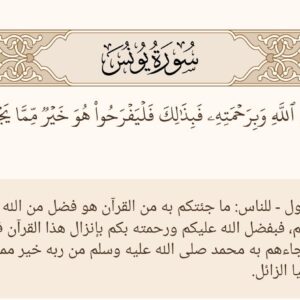 سُورَةُ يُونُسَ
ٱللَّهِ وَبِرَحْمَتِهِۦ فَبِذَٰلِكَ فَلْيَفْرَحُوا۟ هُوَ خَيْرٌ مِّمَّا
ول - للناس: ما جئتكم به من القرآن هو فضل من الله
م، فبفضل الله عليكم ورحمته بكم بإنزال هذا القرآن
جاءهم به محمد صلى الله عليه وسلم من ربه خير مم
يا الزائل.